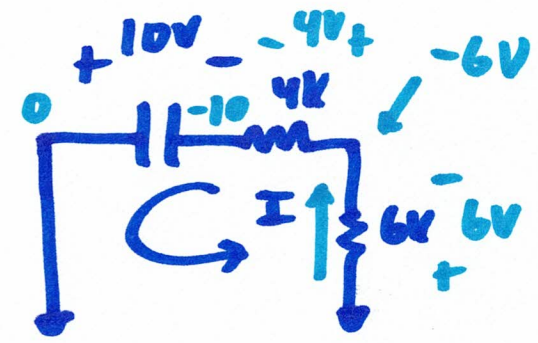 + 10V -
- 4V +
-6V
0
-10
4K
I
6K
-
6V
+